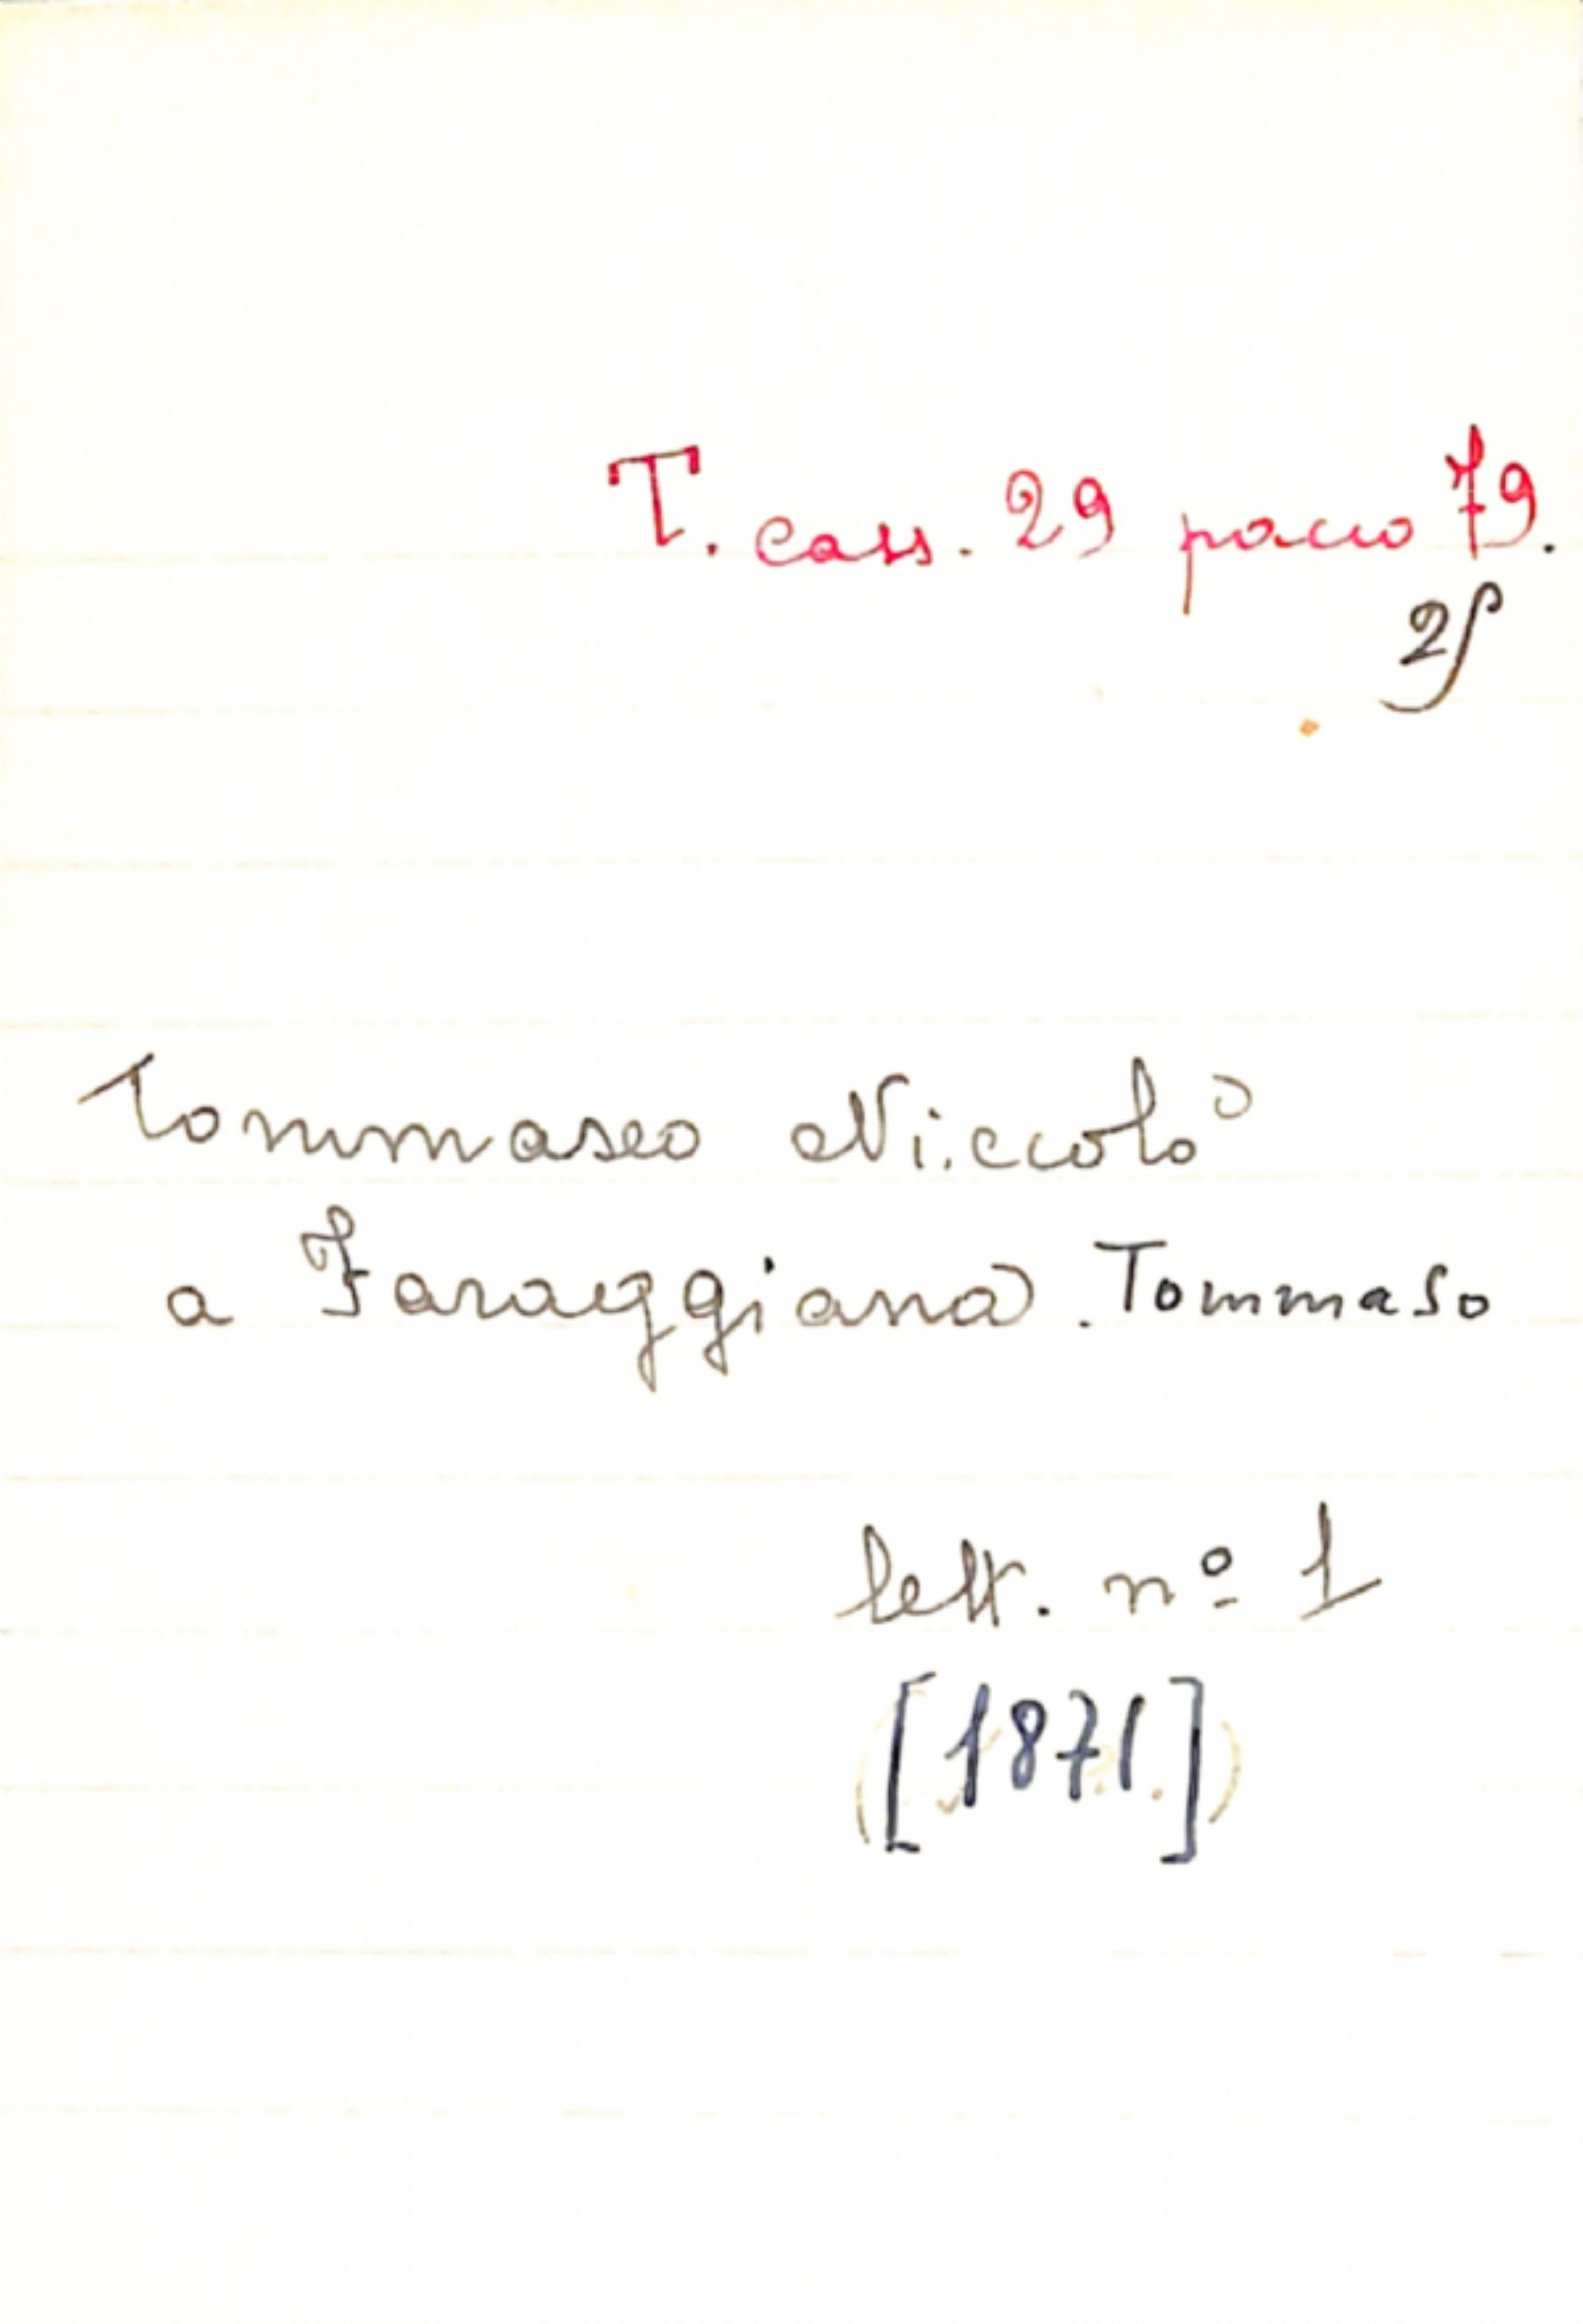 T. cass. 29 pacco 79.
Tommaseo Niccolò
a Faraggiana. Tommaso
lett. nº 1
[1871.]